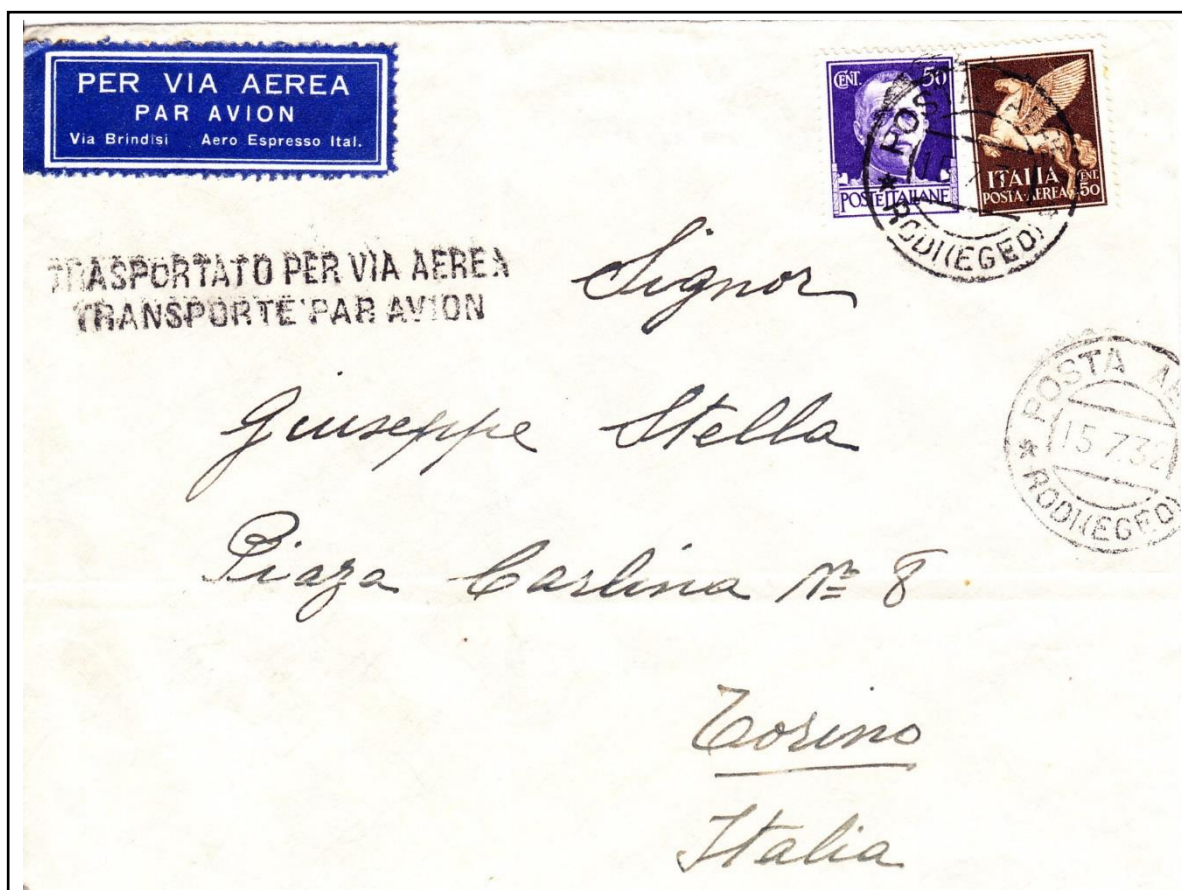 PER VIA AEREA
PAR AVION
Via Brindisi Aero Espresso Ital.
CENT. 50
POSTE ITALIANE
ITALIA
POSTA-AEREA
CENT. 50
POSTA
RODI (EGEO)
TRASPORTATO PER VIA AEREA
TRANSPORTE PAR AVION
Signor
Giuseppe Stella
Piaza Carlina Nº 8
Torino
Italia
POSTA AE
15.7.32
RODI (EGEO)